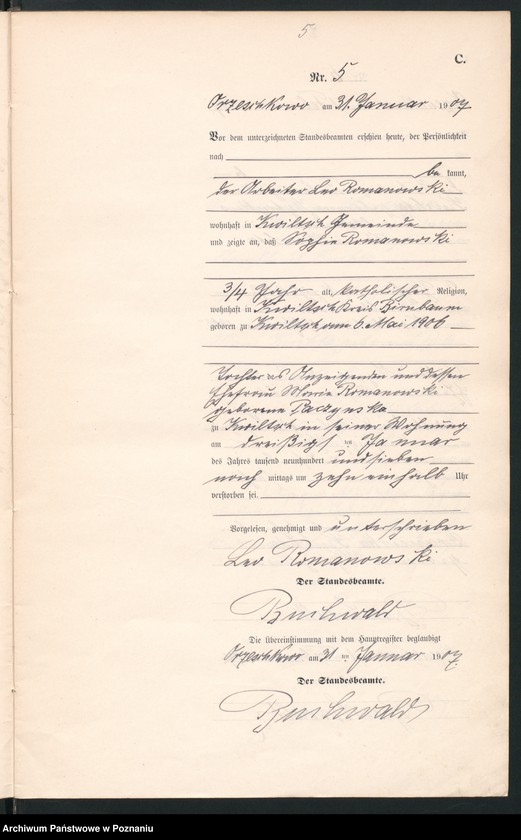 5
C.
Nr. 5
Orzeschkowo am 31. Januar 1907
Vor dem unterzeichneten Standesbeamten erschien heute, der Persönlichkeit
nach
be kannt,
der Arbeiter Leo Romanowski
wohnhaft in Kwiltsch Gemeinde
und zeigte an, daß Sophie Romanowski
3/4 Jahr alt, katholischer Religion,
wohnhaft in Kwiltsch Kreis Birnbaum
geboren zu Kwiltsch am 6. Mai 1906
Tochter des Anzeigenden und dessen
Ehefrau Marie Romanowski
geborene Paczynska
zu Kwiltsch in seiner Wohnung
am dreißigsten Januar
des Jahres tausend neunhundert und sieben
nach mittags um zehn einhalb Uhr
verstorben sei.
Vorgelesen, genehmigt und unterschrieben
Leo Romanowski
Der Standesbeamte.
Buchwald
Die Übereinstimmung mit dem Hauptregister beglaubigt
Orzeschkowo am 31 ten Januar 1907
Der Standesbeamte.
Buchwald
Archiwum Państwowe w Poznaniu